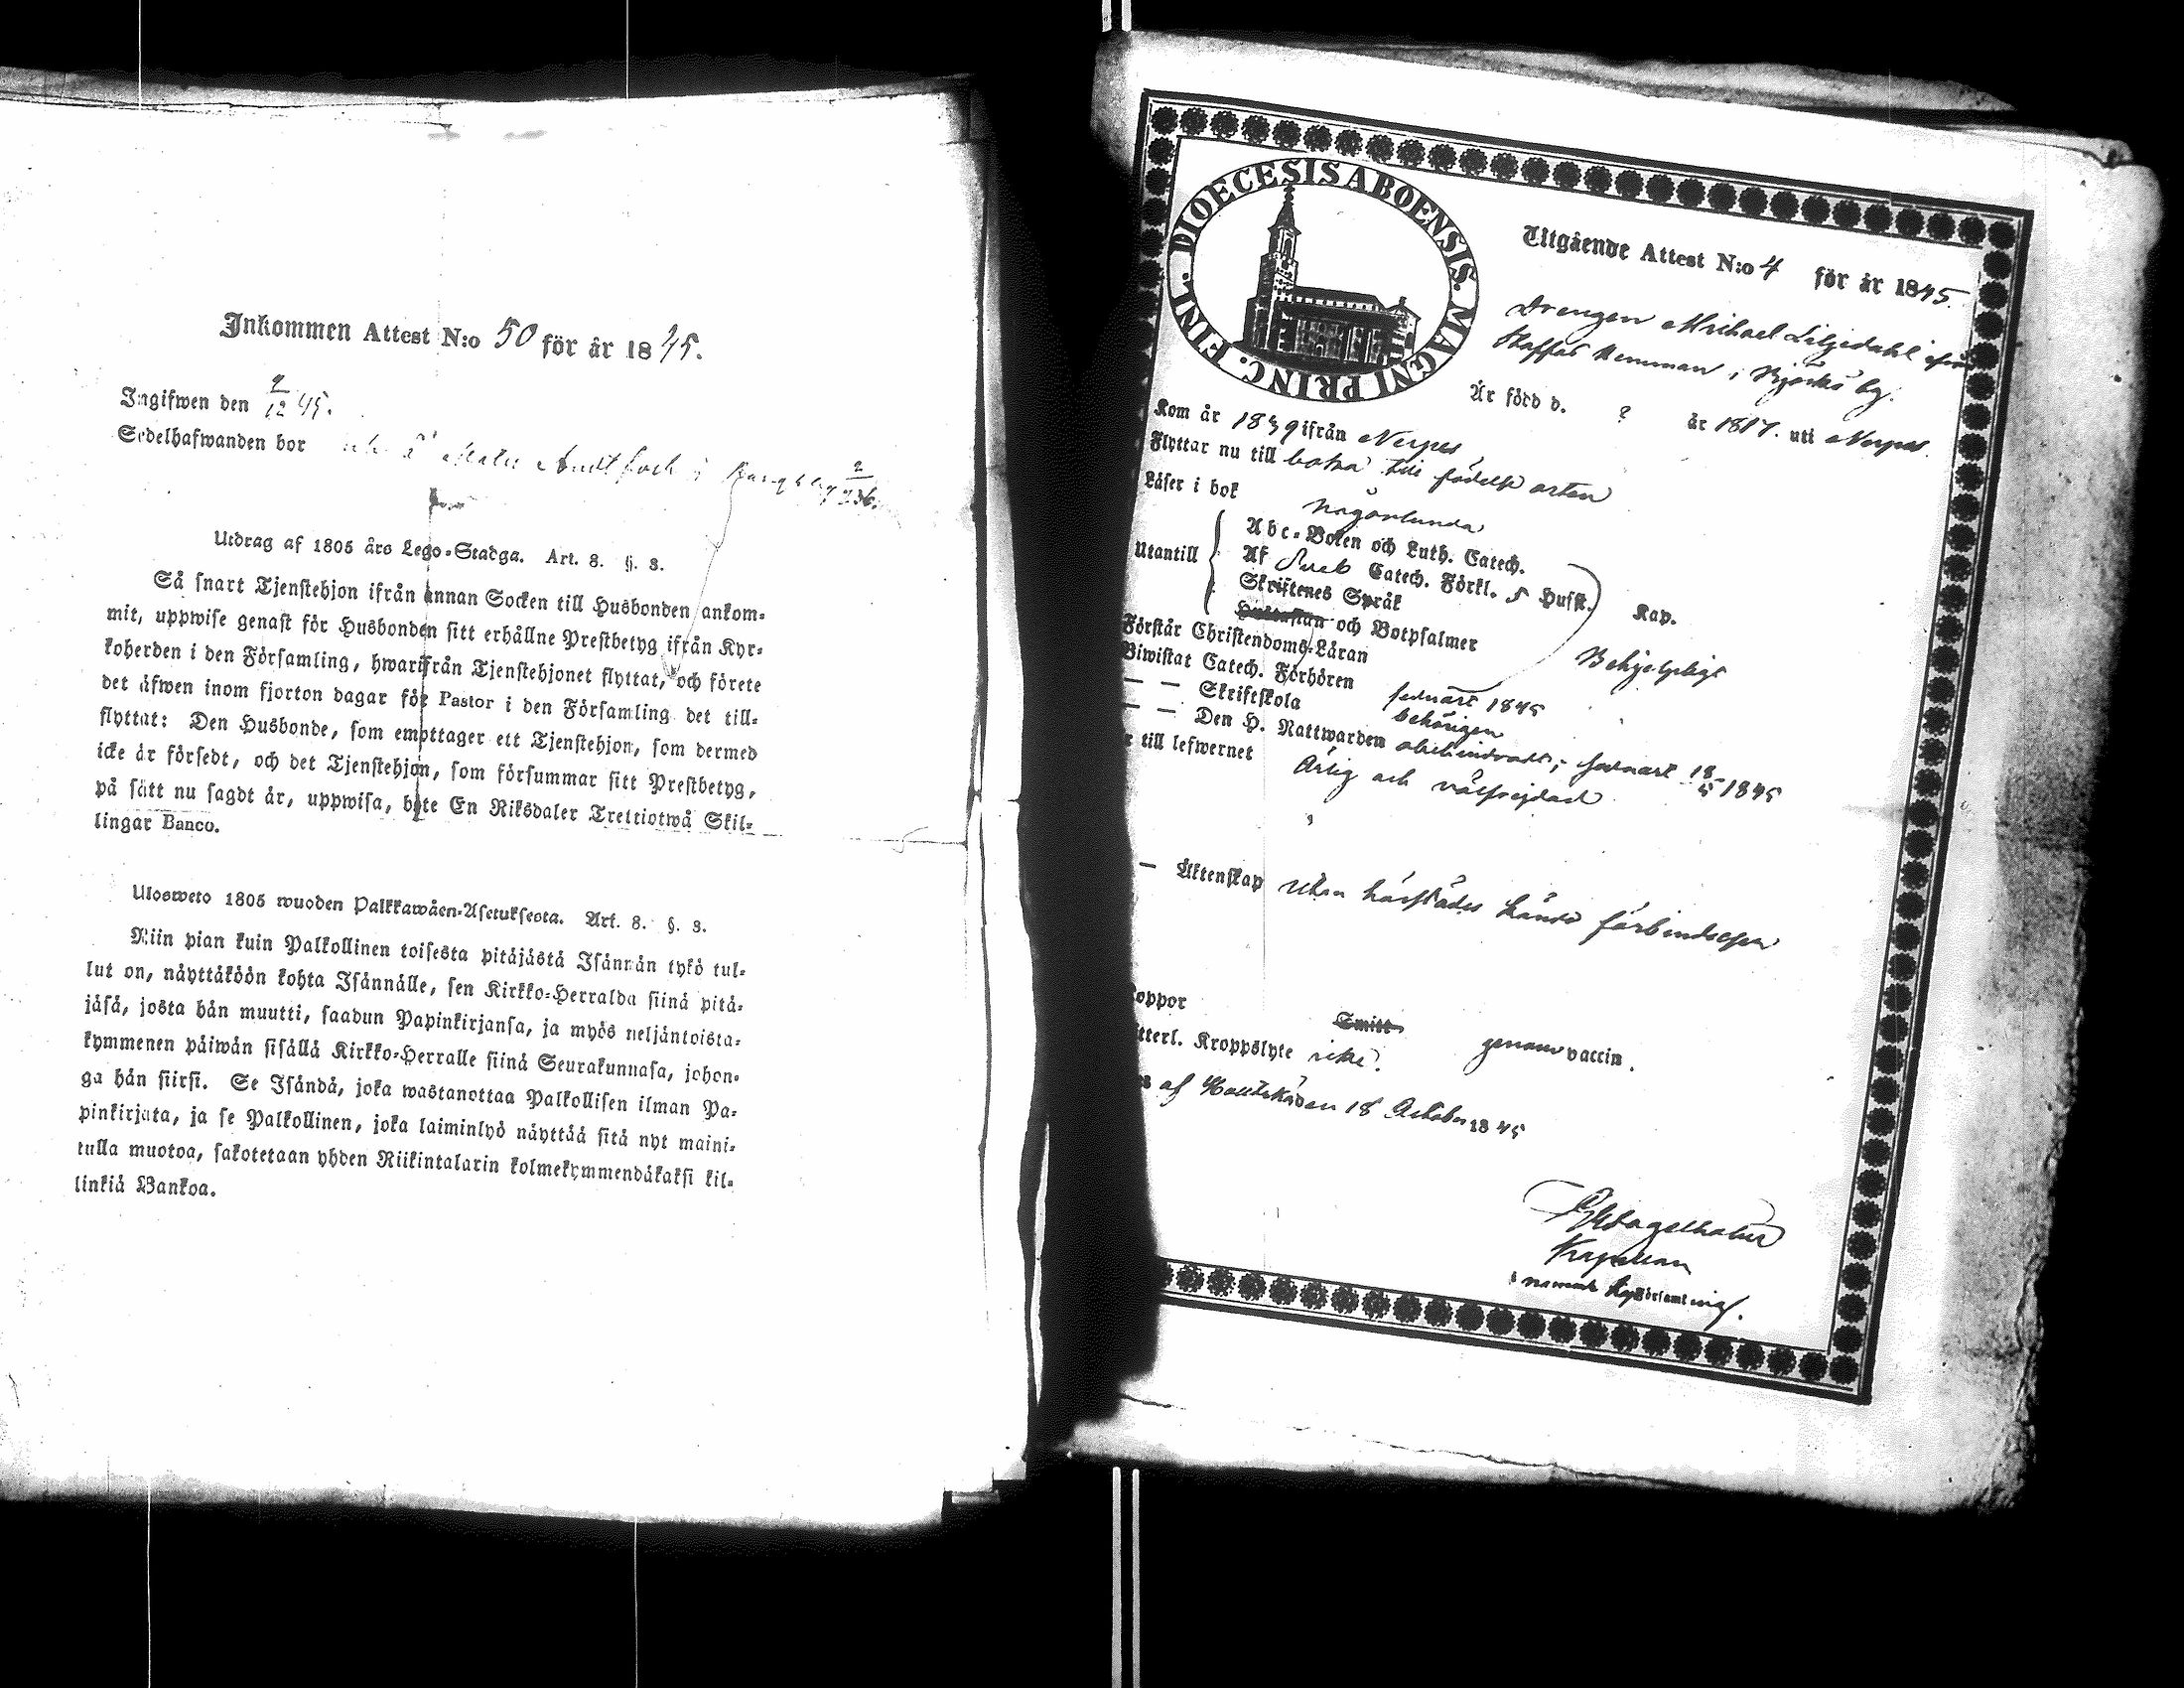 Inkommen Attest N:o 50 för år 1845.
Ingifwen den 2/12 45.
Sedelhafwanden bor
Utdrag af 1805 års Lego-Stadga. Art. 8. §. 3.
Så snart Tjenstehjon ifrån annan Socken till Husbonden ankom-
mit, uppwise genast för Husbonden sitt erhållne Prestbetyg ifrån Kyr-
koherden i den Församling, hwarifrån Tjenstehjonet flyttat, och förete
det äfwen inom fjorton dagar för Pastor i den Församling det till-
flyttat: Den Husbonde, som emottager ett Tjenstehjon, som dermed
icke är försedt, och det Tjenstehjon, som försummar sitt Prestbetyg,
på sätt nu sagdt är, uppwisa, böte En Riksdaler Trettiotwå Skil-
lingar Banco.
Ulosweto 1805 wuoden Palkkawäen-Asetuksesta. Art. 8. §. 3.
Niin pian kuin Palkollinen toisesta pitäjästä Isännän tykö tul-
lut on, näyttäköön kohta Isännälle, sen Kirkko-Herralda siinä pitä-
jäsä, josta hän muutti, saadun Papinkirjansa, ja myös neljäntoista-
kymmenen päiwän sisällä Kirkko-Herralle siinä Seurakunnasa, johon-
ga hän siirsi. Se Isändä, joka wastanottaa Palkollisen ilman Pa-
pinkirjata, ja se Palkollinen, joka laiminlyö näyttää sitä nyt maini-
tulla muotoa, sakotetaan yhden Riikintalarin kolmekymmendäkaksi kil-
linkiä Bankoa.
DIOECESIS ABOENSIS. MAGNI PRINC. FINL.
Utgående Attest N:o 4 för år 1845.
Drengen Michael Liljedahl ifrån
Staffas Hemman i Björkö by.
Är född d. ? år 1817. uti Nerpes.
Kom år 1839 ifrån Nerpes
Flyttar nu till baka till födelse orten
Läser i bok någorlunda
Utantill
Abc-Boken och Luth. Catech.
Af Sveb Catech. Förkl. 5 Husst. Kap.
Skriftenes Språk
Hustaflan och Botpsalmer
Förstår Christendoms-Läran Behjelpligt
Biwistat Catech. Förhören sednast 1845
— — Skriftskola behörigen
— — Den H. Nattwarden obehindradt, sednast 18/5 1845
r till lefwernet Ärlig och välfrejdad
— Äktenskap utan härstädes kände förbindelser
oppor Smitt genom vaccin.
tterl. Kroppslyte icke.
af Houtskär den 18 October 1845
Kapellan
i nämnde Kyrkoförsamling.